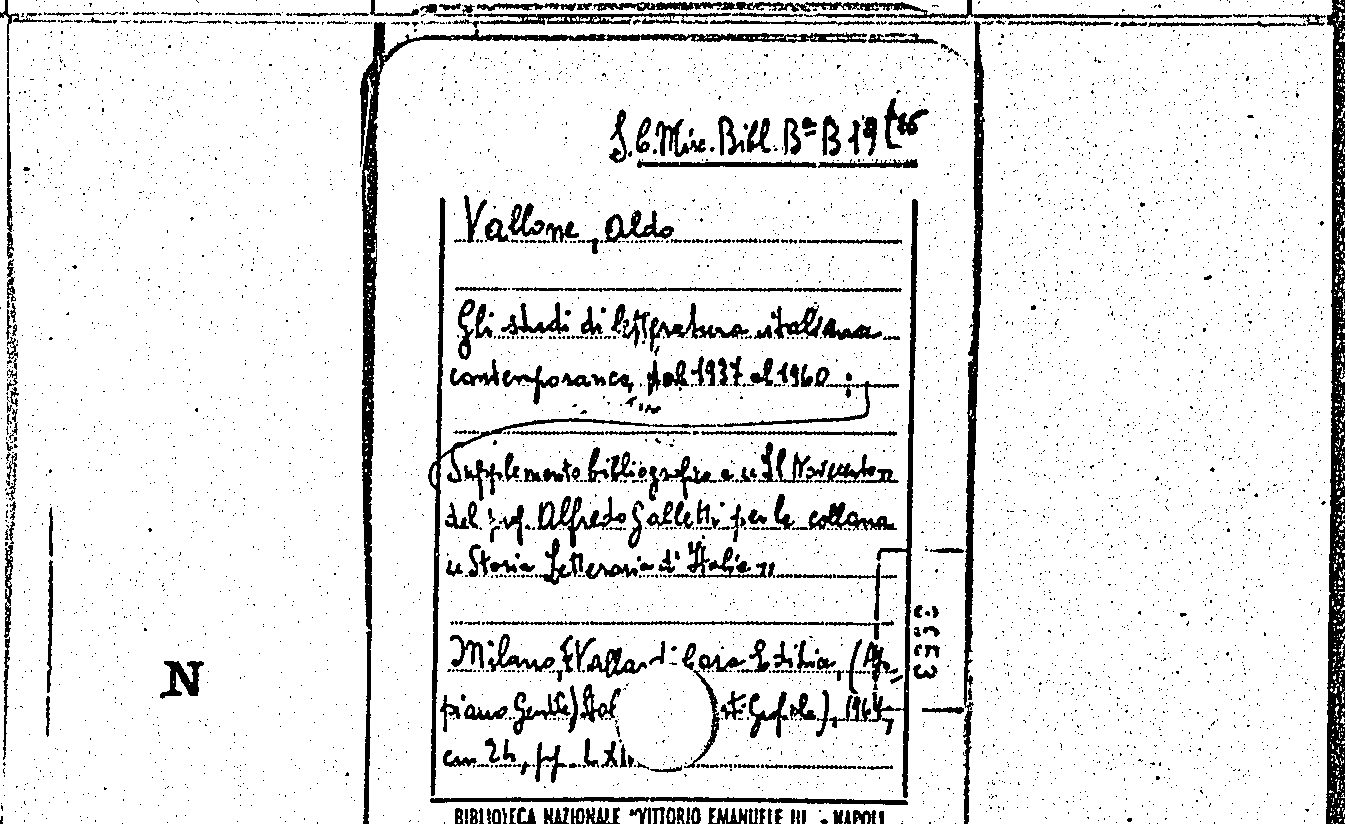 S.C. Misc. Bibl. Bª B 19
Vallone, Aldo
Gli studi di letteratura italiana
contemporanea, dal 1937 al 1960;
Supplemento bibliografico a « Il Novecento »
del prof. Alfredo Galletti per la collana
« Storia Letteraria d'Italia »
3553
Milano, F. Vallardi Casa Editrice, (Ap-
piano Gentile) 1964,
N
cm 24, pp.
BIBLIOTECA NAZIONALE "VITTORIO EMANUELE III - NAPOLI